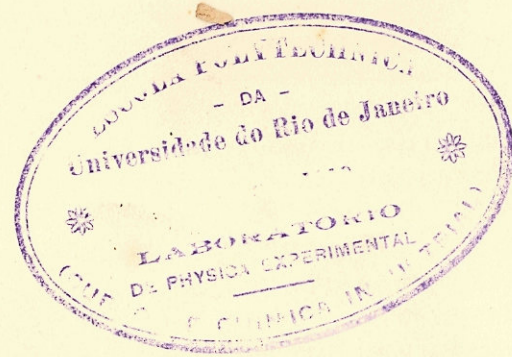 ESCOLA POLYTECHNICA
- DA -
Universidade do Rio de Janeiro
LABORATORIO
DE PHYSICA EXPERIMENTAL